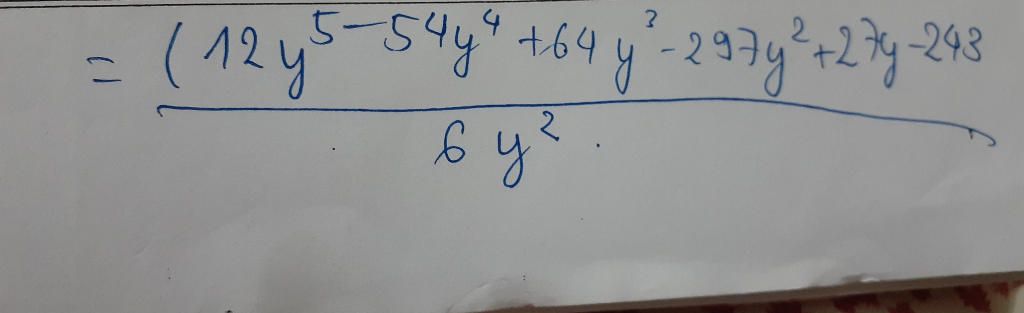 = ( 12y⁵ - 54y⁴ + 64y³ - 297y² + 27y - 243
6y².